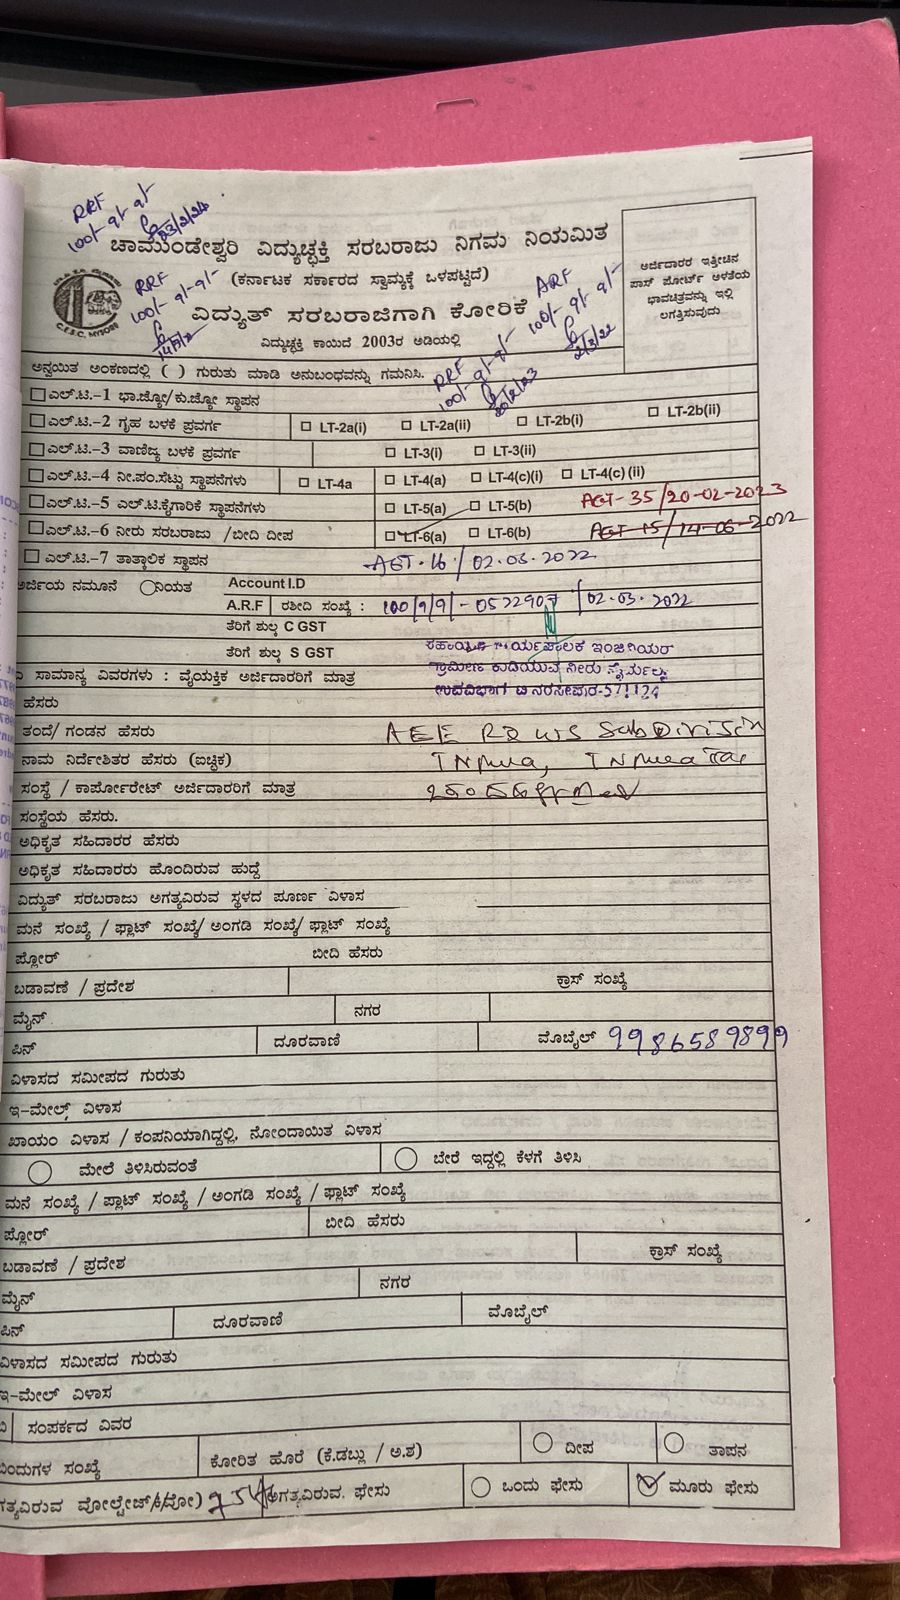 RRF
100/- 9/- 9/-
23/2/24
ಚಾಮುಂಡೇಶ್ವರಿ ವಿದ್ಯುಚ್ಛಕ್ತಿ ಸರಬರಾಜು ನಿಗಮ ನಿಯಮಿತ
(ಕರ್ನಾಟಕ ಸರ್ಕಾರದ ಸ್ವಾಮ್ಯಕ್ಕೆ ಒಳಪಟ್ಟಿದೆ)
ವಿದ್ಯುತ್ ಸರಬರಾಜಿಗಾಗಿ ಕೋರಿಕೆ
ವಿದ್ಯುಚ್ಛಕ್ತಿ ಕಾಯಿದೆ 2003ರ ಅಡಿಯಲ್ಲಿ
C.E.S.C, MYSORE
RRF
100/- 9/- 9/-
ARF
100/- 9/- 9/-
2/3/22
RRF
100/- 9/- 9/-
20/2/23
ಅರ್ಜಿದಾರರ ಇತ್ತೀಚಿನ
ಪಾಸ್ ಪೋರ್ಟ್ ಅಳತೆಯ
ಭಾವಚಿತ್ರವನ್ನು ಇಲ್ಲಿ
ಲಗತ್ತಿಸುವುದು
ಅನ್ವಯಿತ ಅಂಕಣದಲ್ಲಿ ( ) ಗುರುತು ಮಾಡಿ ಅನುಬಂಧವನ್ನು ಗಮನಿಸಿ.
ಎಲ್.ಟಿ.–1 ಭಾ.ಜ್ಯೋ/ಕು.ಜ್ಯೋ ಸ್ಥಾಪನ
ಎಲ್.ಟಿ.–2 ಗೃಹ ಬಳಕೆ ಪ್ರವರ್ಗ LT-2a(i) LT-2a(ii) LT-2b(i) LT-2b(ii)
ಎಲ್.ಟಿ.–3 ವಾಣಿಜ್ಯ ಬಳಕೆ ಪ್ರವರ್ಗ LT-3(i) LT-3(ii)
ಎಲ್.ಟಿ.–4 ನೀ.ಪಂ.ಸೆಟ್ಟು ಸ್ಥಾಪನೆಗಳು LT-4a LT-4(a) LT-4(c)(i) LT-4(c) (ii)
ಎಲ್.ಟಿ.–5 ಎಲ್.ಟಿ.ಕೈಗಾರಿಕೆ ಸ್ಥಾಪನೆಗಳು LT-5(a) LT-5(b) AGT-35/20-02-2023
ಎಲ್.ಟಿ.–6 ನೀರು ಸರಬರಾಜು /ಬೀದಿ ದೀಪ LT-6(a) LT-6(b) AGT-15/14-06-2022
ಎಲ್.ಟಿ.–7 ತಾತ್ಕಾಲಿಕ ಸ್ಥಾಪನ AGT.16/02.03.2022
ಅರ್ಜಿಯ ನಮೂನೆ ನಿಯತ Account I.D
A.R.F ರಶೀದಿ ಸಂಖ್ಯೆ : 100/9/9/-0522907/02.03.2022
ತೆರಿಗೆ ಶುಲ್ಕ C GST
ತೆರಿಗೆ ಶುಲ್ಕ S GST
ಸಹಾಯಕ ಕಾರ್ಯಪಾಲಕ ಇಂಜಿನಿಯರ್
ಗ್ರಾಮೀಣ ಕುಡಿಯುವ ನೀರು ನೈರ್ಮಲ್ಯ
ಉಪವಿಭಾಗ ಟಿ ನರಸೀಪುರ-571124
ಸಾಮಾನ್ಯ ವಿವರಗಳು : ವೈಯಕ್ತಿಕ ಅರ್ಜಿದಾರರಿಗೆ ಮಾತ್ರ
ಹೆಸರು
ತಂದೆ/ ಗಂಡನ ಹೆಸರು AEE RD WS Sub Division
ನಾಮ ನಿರ್ದೇಶಿತರ ಹೆಸರು (ಐಚ್ಛಿಕ)
ಸಂಸ್ಥೆ / ಕಾರ್ಪೋರೇಟ್ ಅರ್ಜಿದಾರರಿಗೆ ಮಾತ್ರ
ಸಂಸ್ಥೆಯ ಹೆಸರು.
ಅಧಿಕೃತ ಸಹಿದಾರರ ಹೆಸರು
ಅಧಿಕೃತ ಸಹಿದಾರರು ಹೊಂದಿರುವ ಹುದ್ದೆ
ವಿದ್ಯುತ್ ಸರಬರಾಜು ಅಗತ್ಯವಿರುವ ಸ್ಥಳದ ಪೂರ್ಣ ವಿಳಾಸ
ಮನೆ ಸಂಖ್ಯೆ / ಫ್ಲಾಟ್ ಸಂಖ್ಯೆ/ ಅಂಗಡಿ ಸಂಖ್ಯೆ/ ಫ್ಲಾಟ್ ಸಂಖ್ಯೆ
ಫ್ಲೋರ್ ಬೀದಿ ಹೆಸರು
ಬಡಾವಣೆ / ಪ್ರದೇಶ ಕ್ರಾಸ್ ಸಂಖ್ಯೆ
ಮೈನ್ ನಗರ
ಪಿನ್ ದೂರವಾಣಿ ಮೊಬೈಲ್ 9986589899
ವಿಳಾಸದ ಸಮೀಪದ ಗುರುತು
ಇ–ಮೇಲ್ ವಿಳಾಸ
ಖಾಯಂ ವಿಳಾಸ / ಕಂಪನಿಯಾಗಿದ್ದಲ್ಲಿ, ನೋಂದಾಯಿತ ವಿಳಾಸ
ಮೇಲೆ ತಿಳಿಸಿರುವಂತೆ ಬೇರೆ ಇದ್ದಲ್ಲಿ ಕೆಳಗೆ ತಿಳಿಸಿ
ಮನೆ ಸಂಖ್ಯೆ / ಪ್ಲಾಟ್ ಸಂಖ್ಯೆ / ಅಂಗಡಿ ಸಂಖ್ಯೆ / ಫ್ಲಾಟ್ ಸಂಖ್ಯೆ
ಫ್ಲೋರ್ ಬೀದಿ ಹೆಸರು
ಬಡಾವಣೆ / ಪ್ರದೇಶ ಕ್ರಾಸ್ ಸಂಖ್ಯೆ
ಮೈನ್ ನಗರ
ಪಿನ್ ದೂರವಾಣಿ ಮೊಬೈಲ್
ವಿಳಾಸದ ಸಮೀಪದ ಗುರುತು
ಇ–ಮೇಲ್ ವಿಳಾಸ
ಸಂಪರ್ಕದ ವಿವರ
ಬಿಂದುಗಳ ಸಂಖ್ಯೆ ಕೋರಿತ ಹೊರೆ (ಕೆ.ಡಬ್ಲು / ಅ.ಶ) ದೀಪ ತಾಪನ
ಅಗತ್ಯವಿರುವ ವೋಲ್ಟೇಜ್ ಅಗತ್ಯವಿರುವ ಫೇಸು ಒಂದು ಫೇಸು ಮೂರು ಫೇಸು